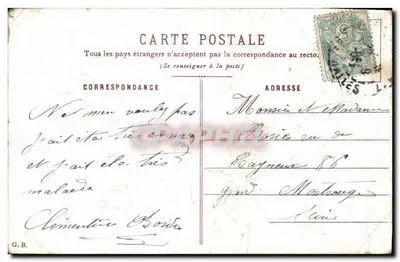 CARTE POSTALE
Tous les pays étrangers n'acceptent pas la correspondance au recto.
(Se renseigner à la poste)
CORRESPONDANCE
Ne m'en voulez pas
j'ait été très
et j'ait été très
malade
Clémentine
G. B.
ADRESSE
Monsieur et Madame
rue de
Bagneux 86
grand Montrouge
Seine